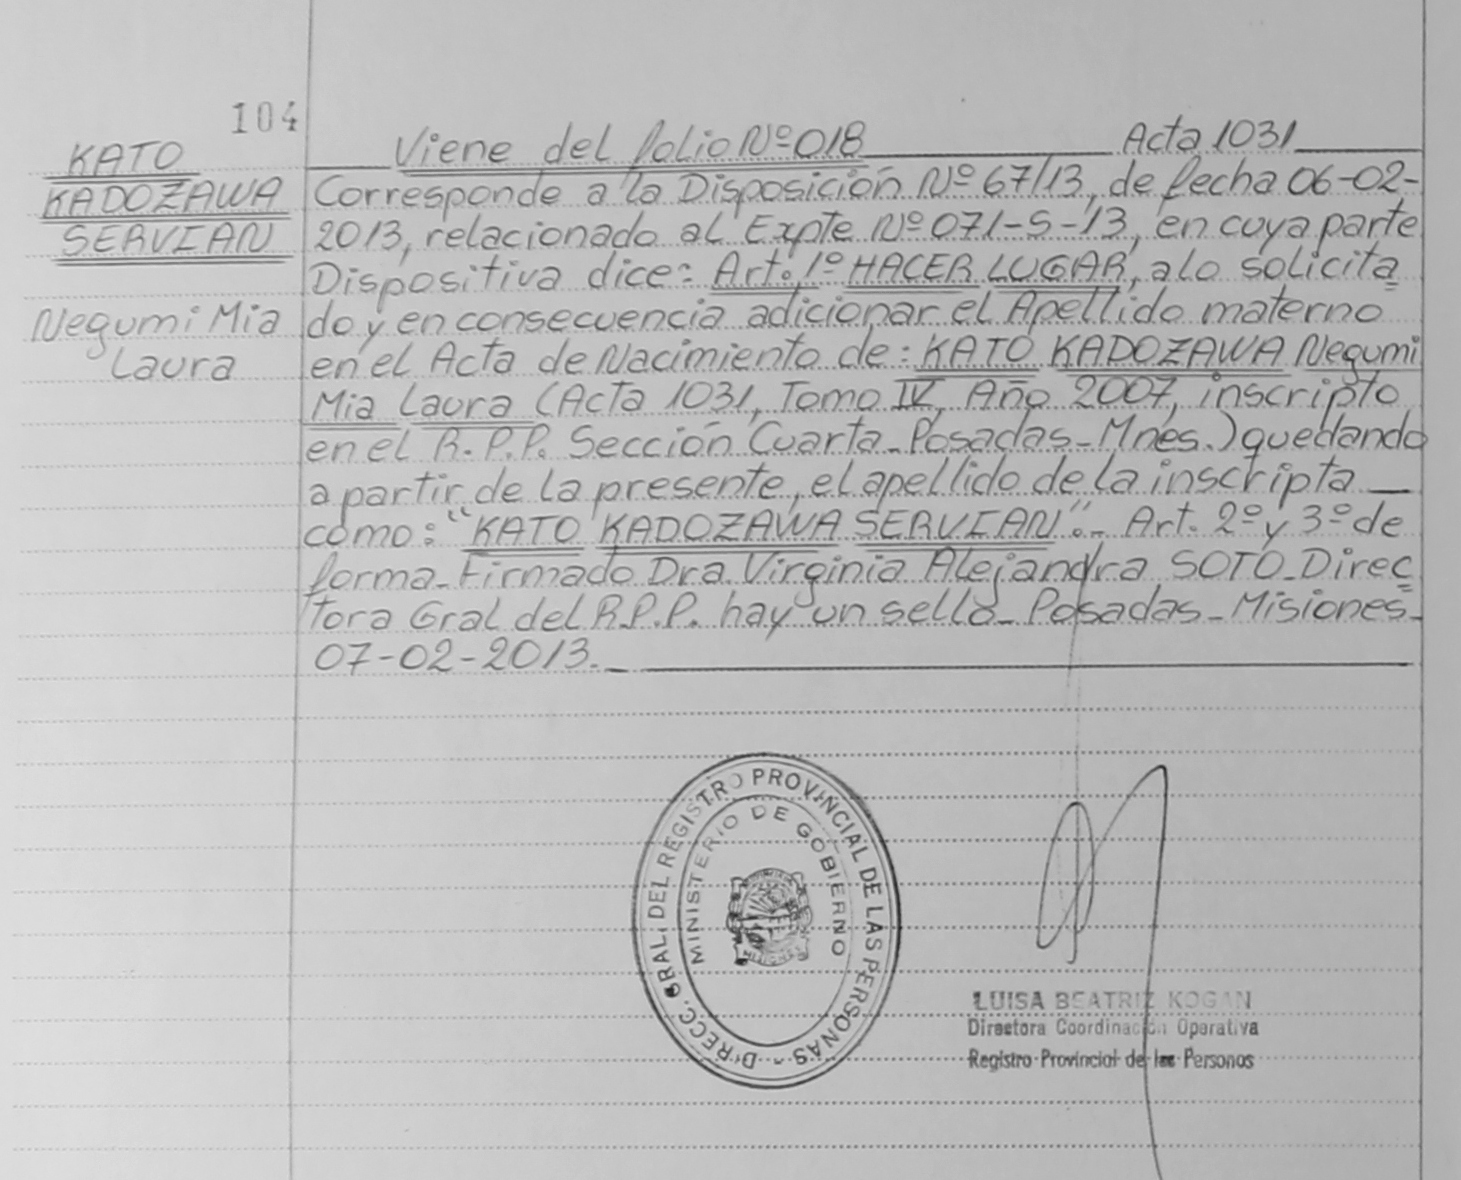 104
KATO
KADOZAWA
SERVIAN
Negumi Mia
Laura
Viene del folio Nº 018 Acta 1031
Corresponde a la Disposición Nº 67/13, de fecha 06-02-
2013, relacionado al Expte Nº 071-S-13, en cuya parte
Dispositiva dice: Art. 1º HACER LUGAR, a lo solicita=
do y en consecuencia adicionar el Apellido materno
en el Acta de Nacimiento de: KATO KADOZAWA Negumi
Mia Laura (Acta 1031, Tomo IV, Año 2007, inscripto
en el R.P.P. Sección Cuarta-Posadas-Mnes.) quedando
a partir de la presente, el apellido de la inscripta —
como: "KATO KADOZAWA SERVIAN".- Art. 2º y 3º de
forma-Firmado Dra. Virginia Alejandra SOTO-Direc=
tora Gral del R.P.P. hay un sello-Posadas-Misiones-
07-02-2013.-
DIRECC. GRAL. DEL REGISTRO PROVINCIAL DE LAS PERSONAS -
MINISTERIO DE GOBIERNO
MISIONES
LUISA BEATRIZ KOGAN
Directora Coordinación Operativa
Registro Provincial de las Personas